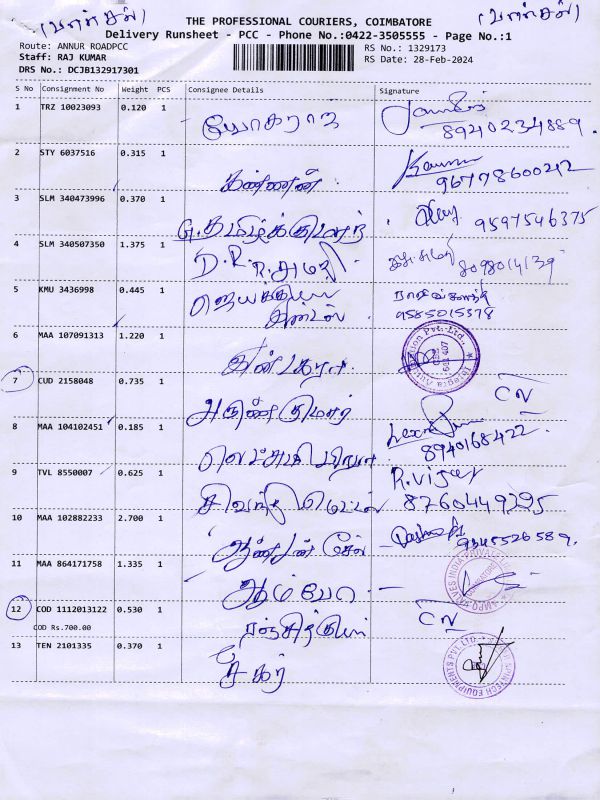 (பார்சல்) (பார்சல்)
THE PROFESSIONAL COURIERS, COIMBATORE
Delivery Runsheet - PCC - Phone No.:0422-3505555 - Page No.:1
Route: ANNUR ROADPCC RS No.: 1329173
Staff: RAJ KUMAR RS Date: 28-Feb-2024
DRS No.: DCJB132917301
S No Consignment No Weight PCS Consignee Details Signature
1 TRZ 10023093 0.120 1 யோகராஜ்
8940234889.
2 STY 6037516 0.315 1 கண்ணன்
96778600212
3 SLM 340473996 0.370 1 G.தமிழ்க்குமரன் 9597546375
4 SLM 340507350 1.375 1 D.R.R.அமர்
5 KMU 3436998 0.445 1
9585015378
6 MAA 107091313 1.220 1
7 CUD 2158048 0.735 1 அருண்குமார் CN
8 MAA 104102451 0.185 1
8940168422
9 TVL 8550007 0.625 1 R.vijay
8760449295
10 MAA 102882233 2.700 1 9345526589.
11 MAA 864171758 1.335 1 ஆம்போ
12 COD 1112013122 0.530 1 CN
COD Rs.700.00
13 TEN 2101335 0.370 1 சேகர்